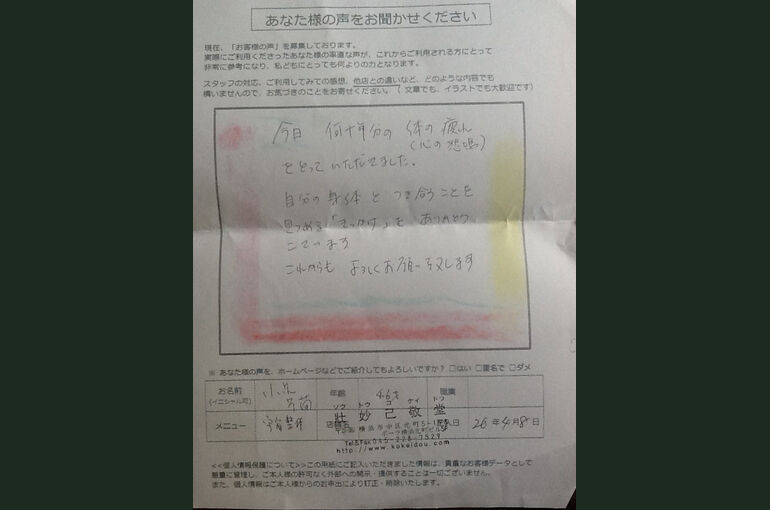 あなた様の声をお聞かせください
現在、「お客様の声」を募集しております。
実際にご利用くださったあなた様の率直な声が、これからご利用される方にとって
非常に参考になり、私どもにとっても何よりの力となります。
スタッフの対応、ご利用してみての感想、他店との違いなど、どのような内容でも
構いませんので、お気づきのことをお寄せください。（文章でも、イラストでも大歓迎です）
今日 何十年分の 体の疲れ
(心の悲鳴)
をとっていただきました。
自分の身体と つき合うことを
見つめる「きっかけ」を ありがとう
ございます
これからも よろしくお願い致します
※ あなた様の声を、ホームページなどでご紹介してもよろしいですか？ □はい □匿名で □ダメ
お名前
(イニシャル可)
年齢 46才 職業
ソウ トウ コ ケイ ドウ
壮 妙 己 敬 堂
メニュー
横浜市中区元町5-1
26年4月8日
Tel&Fax 045-228-7529
http://www.kokeidou.com
<<個人情報保護について>>この用紙にご記入いただきました情報は、貴重なお客様データとして
厳重に管理し、ご本人様の許可なく外部への開示・提供することは一切ございません。
また、個人情報はご本人様からのお申出により訂正・削除いたします。